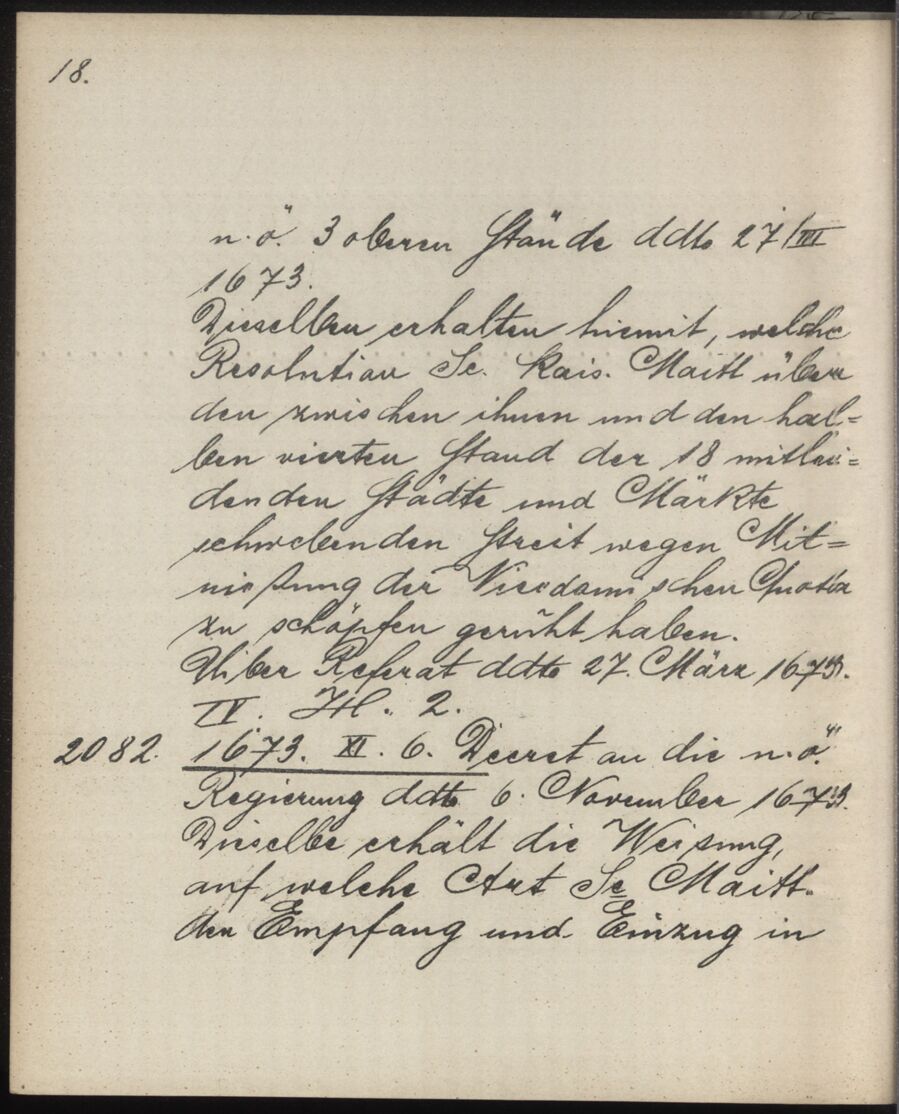 18.
n. ö. 3 oberen Stände ddto 27/III
1673.
Dieselben erhalten hiemit, welche
Resolution Se. Kais. Maitt über
den zwischen ihnen und den hal=
ben vierten Stand der 18 mitlei=
denden Städte und Märkte
schwebenden Streit wegen Mit=
nießung der Vicedomischen Quota
zu schöpfen geruht haben.
Über Referat ddto 27. März 1673.
IV. H. 2.
2082. 1673. XI. 6. Decret an die n. ö.
Regierung ddto 6. November 1673.
Dieselbe erhält die Weisung,
auf welche Art Se Maitt.
den Empfang und Einzug in